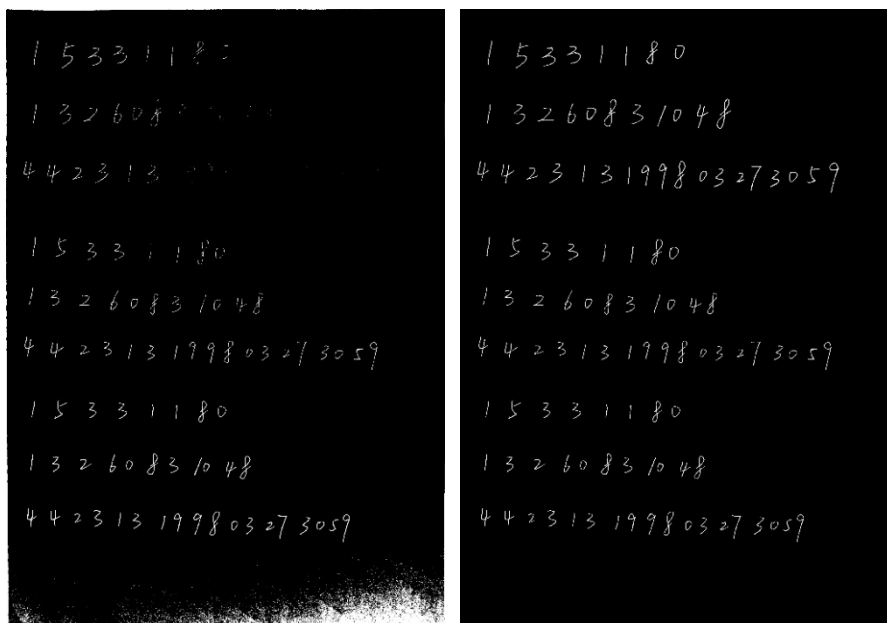 1 5 3 3 1 1 8
1 3 2 6 0 8
4 4 2 3 1 3
1 5 3 3 1 1 8 0
1 3 2 6 0 8 3 1 0 4 8
4 4 2 3 1 3 1 9 9 8 0 3 2 7 3 0 5 9
1 5 3 3 1 1 8 0
1 3 2 6 0 8 3 1 0 4 8
4 4 2 3 1 3 1 9 9 8 0 3 2 7 3 0 5 9
1 5 3 3 1 1 8 0
1 3 2 6 0 8 3 1 0 4 8
4 4 2 3 1 3 1 9 9 8 0 3 2 7 3 0 5 9
1 5 3 3 1 1 8 0
1 3 2 6 0 8 3 1 0 4 8
4 4 2 3 1 3 1 9 9 8 0 3 2 7 3 0 5 9
1 5 3 3 1 1 8 0
1 3 2 6 0 8 3 1 0 4 8
4 4 2 3 1 3 1 9 9 8 0 3 2 7 3 0 5 9